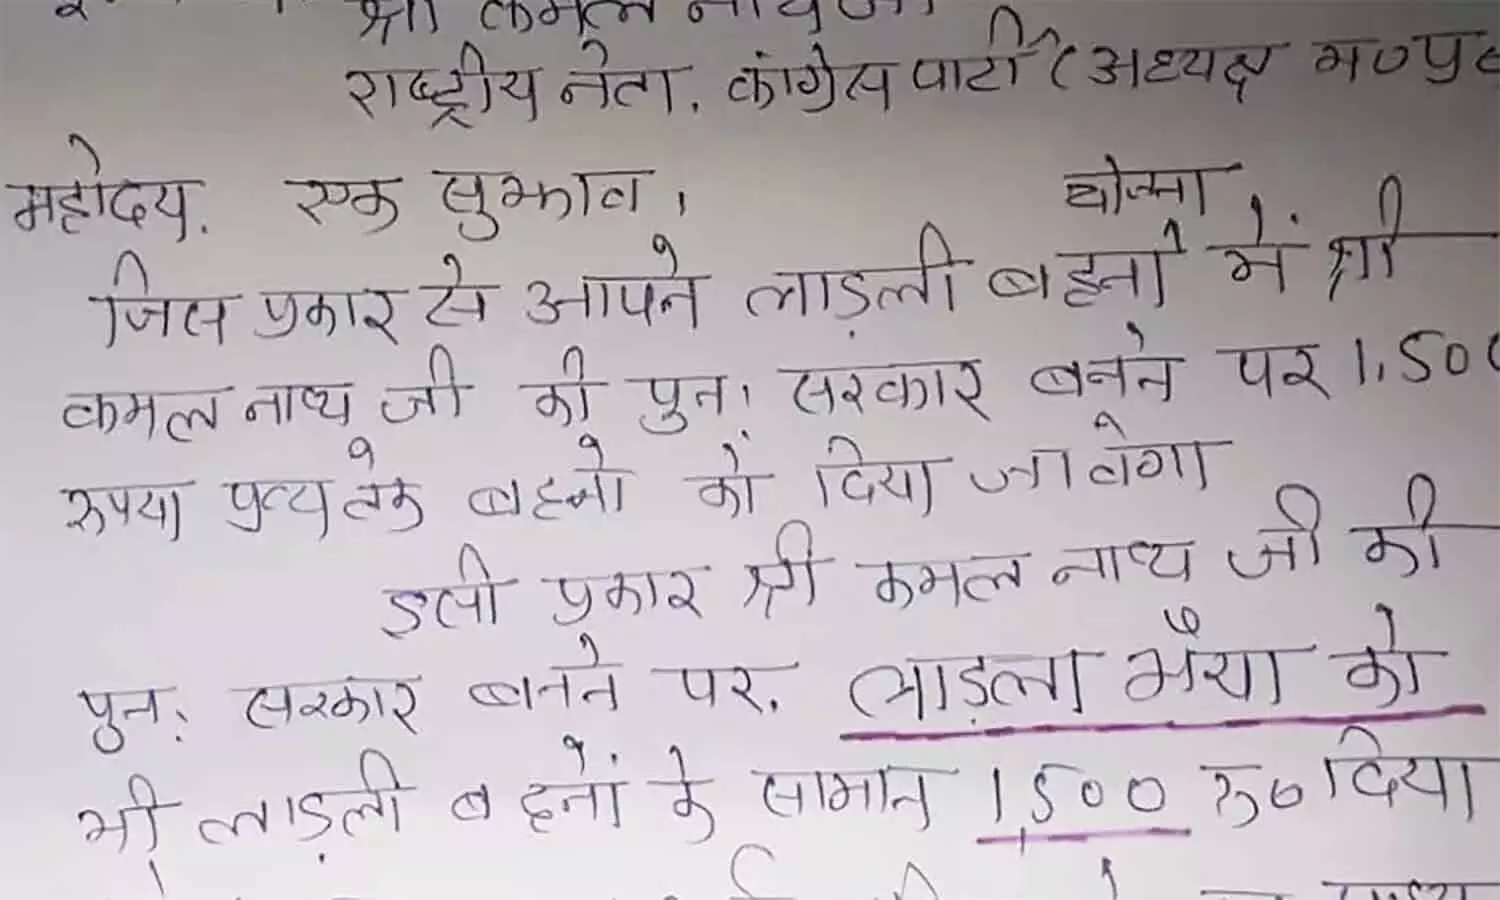 श्री कमल नाथ जी
राष्ट्रीय नेता. कांग्रेस पार्टी (अध्यक्ष म०प्र०
महोदय. एक सुझाव। योजना
जिस प्रकार से आपने लाड़ली बहनों में श्री
कमल नाथ जी की पुनः सरकार बनने पर 1,500
रुपया प्रत्येक बहनो को दिया जावेगा
इसी प्रकार श्री कमल नाथ जी की
पुनः सरकार बनने पर. लाड़ला भैया को
भी लाड़ली बहनों के सामान 1,500 रु० दिया